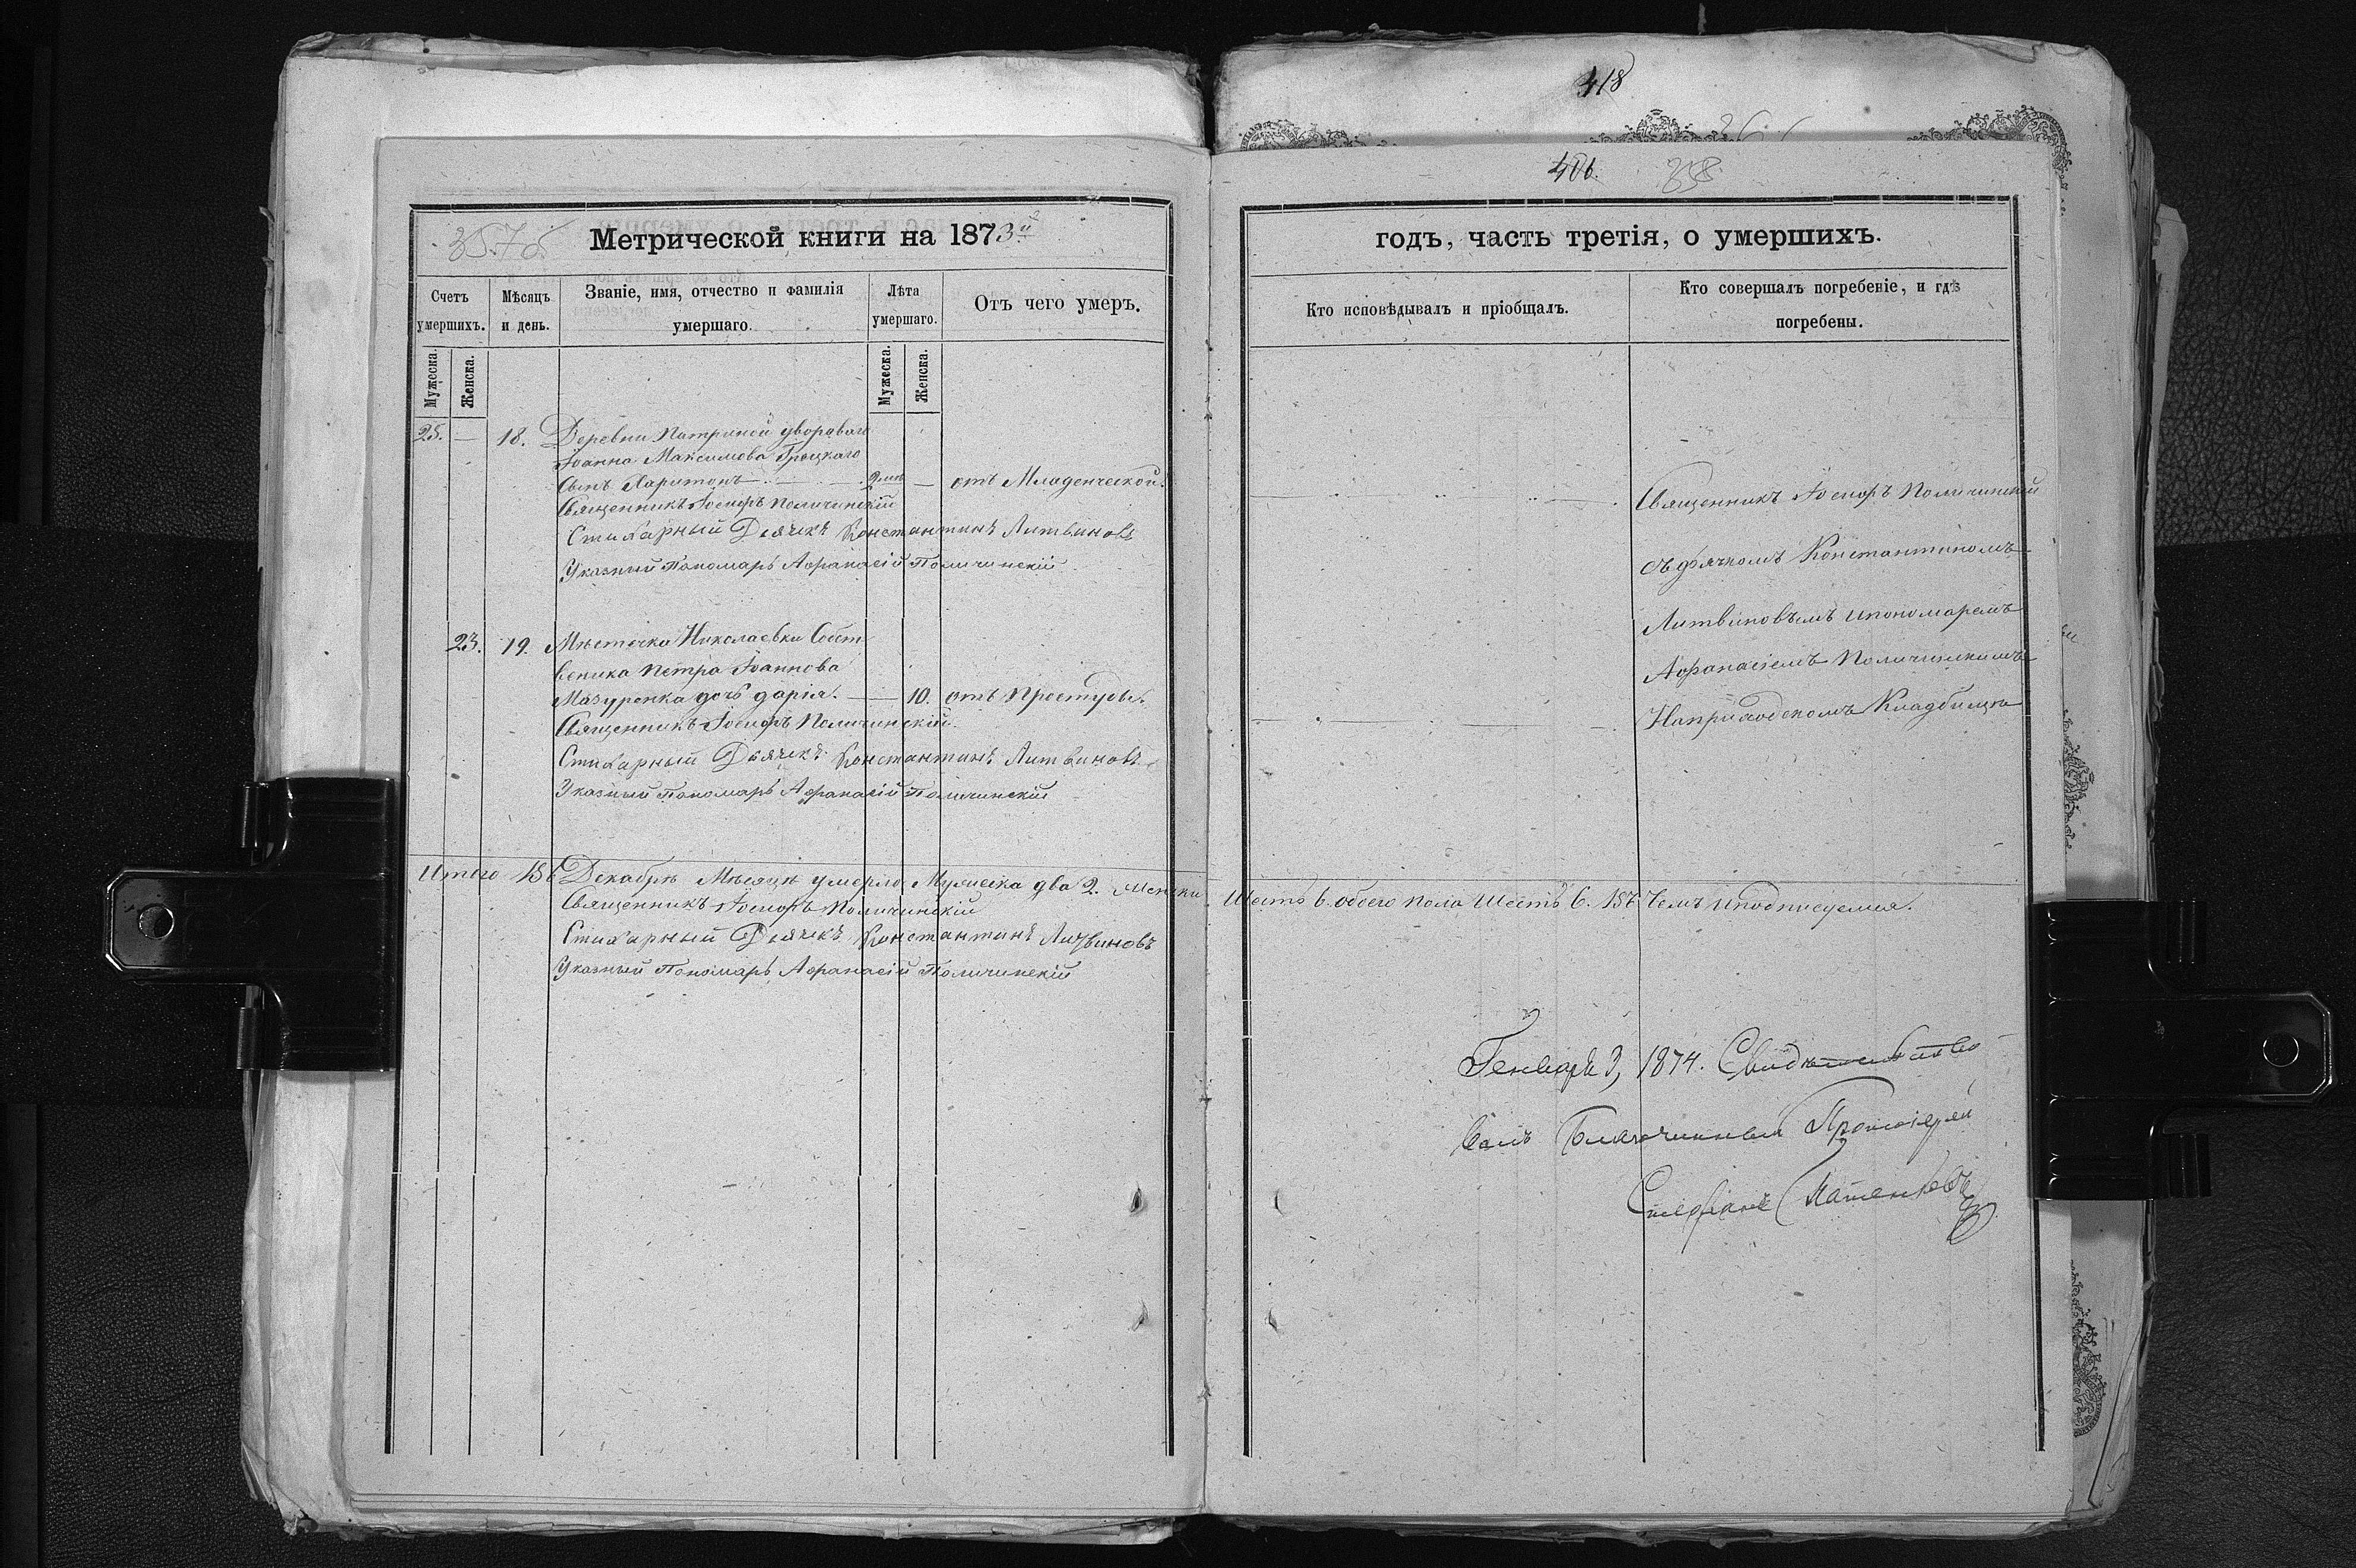 418
406. 358
3575
Метрической книги на 1873й
годъ, часть третія, о умершихъ.
Счетъ умершихъ.
Мѣсяцъ и день.
Званіе, имя, отчество и фамилія умершаго.
Лѣта умершаго.
Отъ чего умеръ.
Кто исповѣдывалъ и пріобщалъ.
Кто совершалъ погребеніе, и гдѣ погребены.
Мужеска.
Женска.
Мужеска.
Женска.
25. — 18. Деревни
Іоанна Максимова
Сынъ Харитонъ — — отъ Младенческой.
Священникъ Іосифъ Поличинскій
Стихарный Дьячекъ Константинъ Литвиновъ
Указный Пономарь Афанасій Поличинскій
Священникъ Іосифъ Поличинскій
съ дьячкомъ Константиномъ
Литвиновымъ и пономаремъ
Афанасіемъ Поличинскимъ
На приходскомъ Кладбищѣ
23. 19. Мѣстечка Николаевки Собст
веника Петра Іоаннова
Мазуренка дочь дарія. — 10. отъ Простуды.
Священникъ Іосифъ Поличинскій.
Стихарный Дьячекъ Константинъ Литвиновъ
Указный Пономарь Афанасій Поличинскій
Итого Въ Декабрѣ Мѣсяцѣ умерло Мужеска два 2. Женска
Шесть 6. обоего пола Шесть 6. Въ Чемъ и подписуемся.
Священникъ Іосифъ Поличинскій
Стихарный Дьячекъ Константинъ Литвиновъ
Указный Пономарь Афанасій Поличинскій
Генваря 3, 1874. Свидѣтельство
валъ Благочинный Протоіерей
Стефанъ